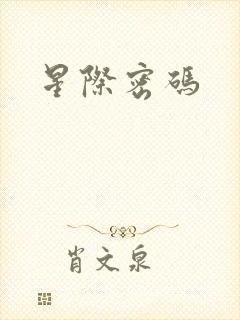 星際密碼
肖文泉